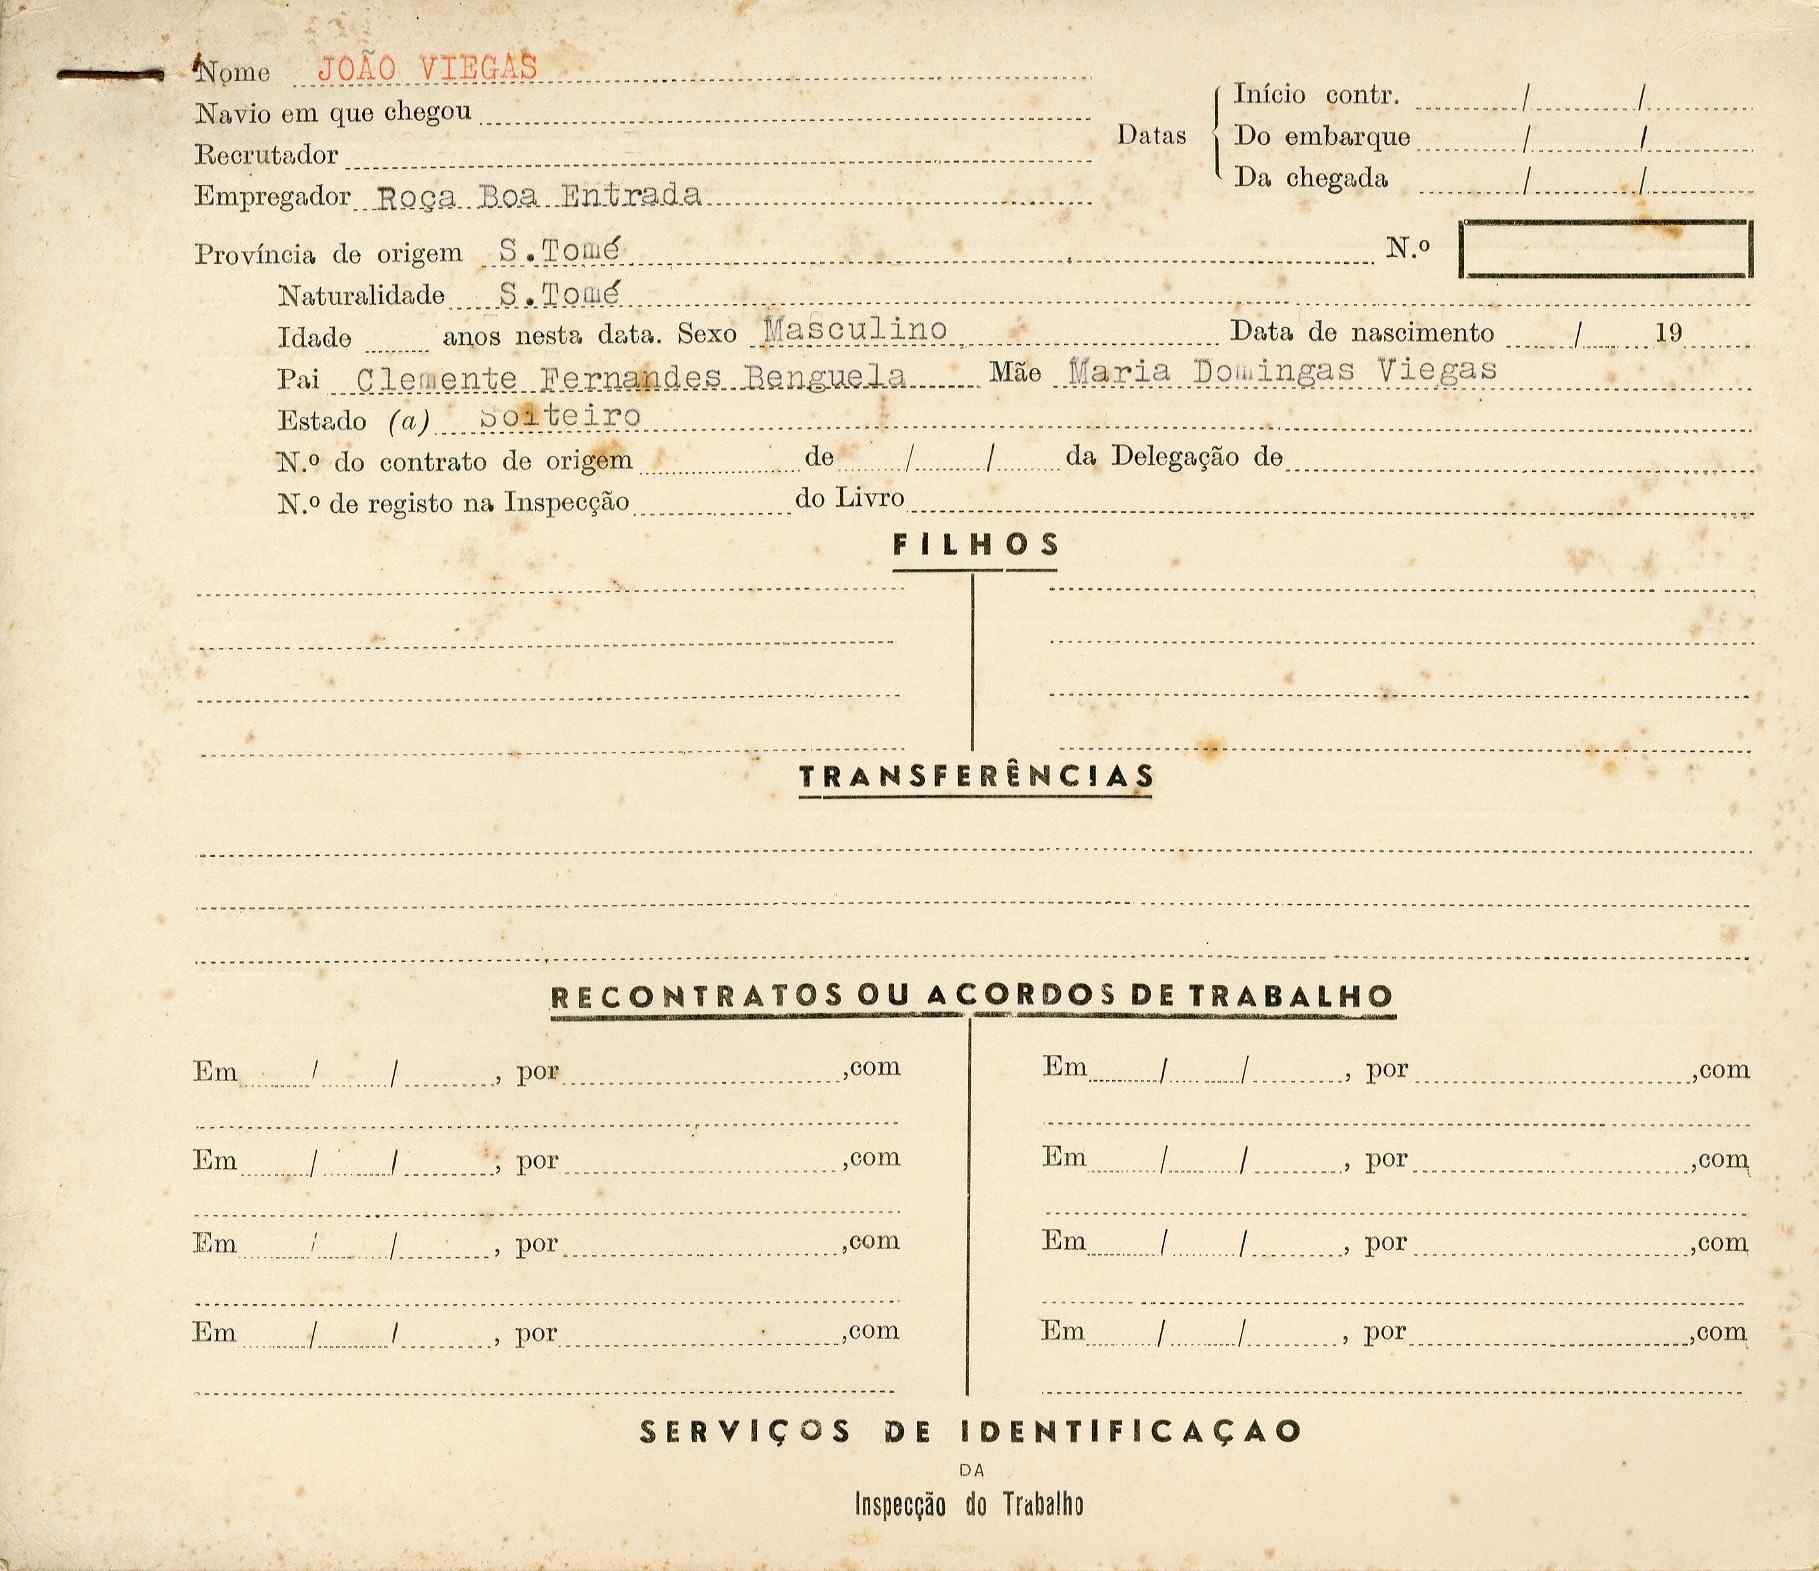 Nome JOÃO VIEGAS
Navio em que chegou
Recrutador
Empregador Roça Boa Entrada
Datas
Início contr. / /
Do embarque / /
Da chegada / /
Província de origem S.Tomé N.º
Naturalidade S.Tomé
Idade anos nesta data. Sexo Masculino Data de nascimento / 19
Pai Clemente Fernandes Benguela Mãe Maria Domingas Viegas
Estado (a) Solteiro
N.º do contrato de origem de / / da Delegação de
N.º de registo na Inspecção do Livro
FILHOS
TRANSFERÊNCIAS
RECONTRATOS OU ACORDOS DE TRABALHO
Em / / , por ,com
Em / / , por ,com
Em / / , por ,com
Em / / , por ,com
Em / / , por ,com
Em / / , por ,com
Em / / , por ,com
Em / / , por ,com
SERVIÇOS DE IDENTIFICAÇAO
DA
Inspecção do Trabalho